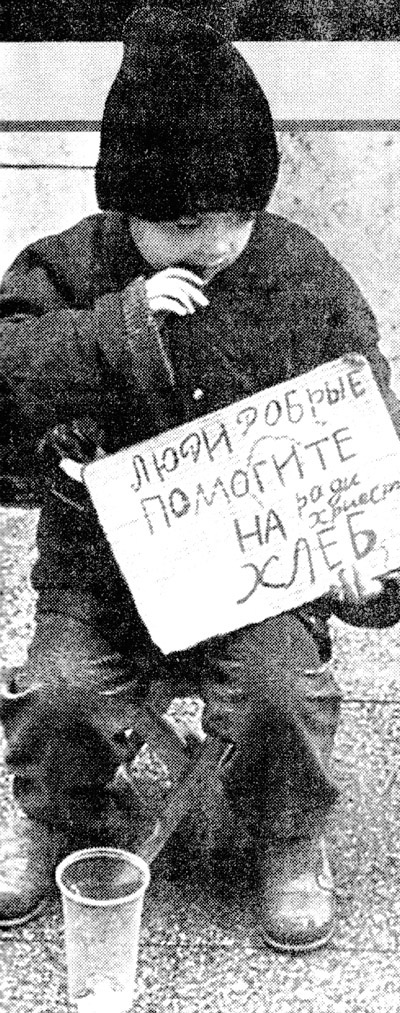 ЛЮДИ ДОБРЫЕ
ПОМОГИТЕ
НА ради
христ
ХЛЕБ